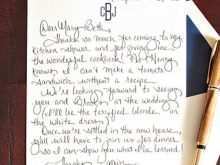 CBJ
Dear Mary-Beth,
Thank you so much for coming to my
kitchen shower and for giving me
the wonderful cookbook! Jeff Henry
knows I can't make a tomato
sandwich without a recipe.
We're looking forward to seeing
you and at the wedding
(I'll be the terrified blonde in
the white dress!)
Once we're settled in the new house,
you'll have to join us for dinner.